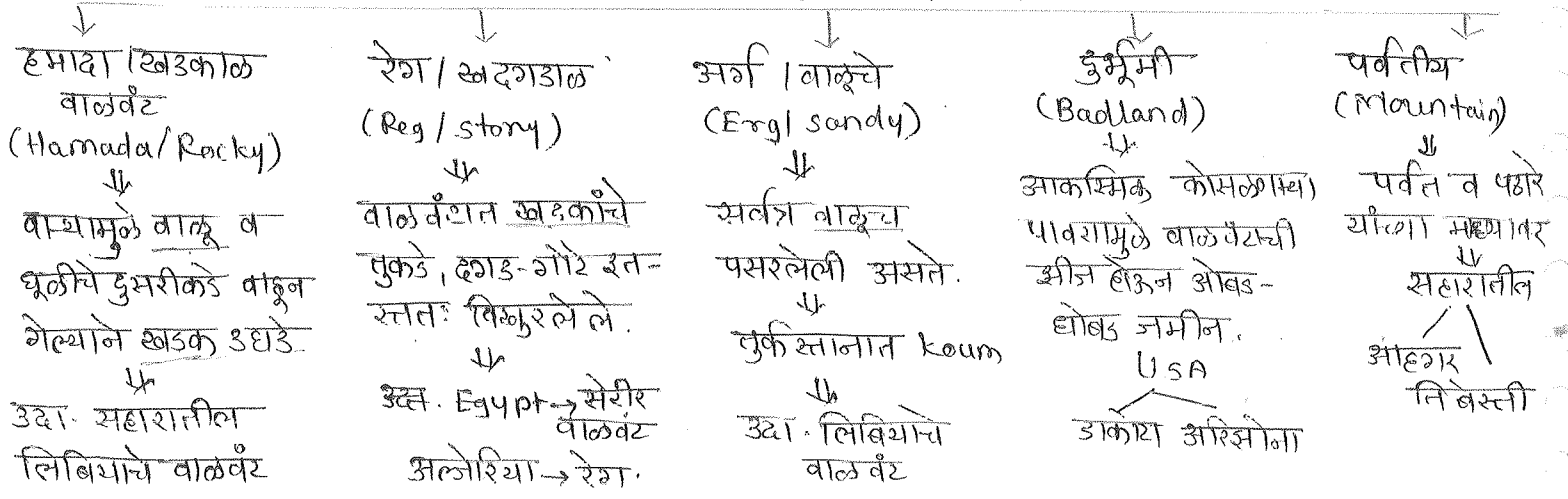 हमादा/खडकाळ
वाळवंट
(Hamada/Rocky)
वाऱ्यामुळे वाळू व
धूळीचे दुसरीकडे वाहून
गेल्याने खडक उघडे
उदा. सहारातील
लिबियाचे वाळवंट
रेग/खदगडाळ
(Reg/stony)
वाळवंटात खडकांचे
तुकडे, दगड-गोटे इत-
स्ततः विखुरलेले.
उदा. Egypt → सेरीर
वाळवंट
अल्जेरिया → रेग.
अर्ग/वाळूचे
(Erg/sandy)
सर्वत्र वाळूच
पसरलेली असते.
तुर्कस्तानात koum
उदा. लिबियाचे
वाळवंट
दुर्भूमी
(Badland)
आकस्मिक कोसळणाऱ्या
पावसामुळे वाळवंटाची
झीज होऊन ओबड-
धोबड जमीन.
USA
डाकोटा अरिझोना
पर्वतीय
(Mountain)
पर्वत व पठारे
यांच्या माथ्यावर
सहारातील
आहगर
तिबेस्ती